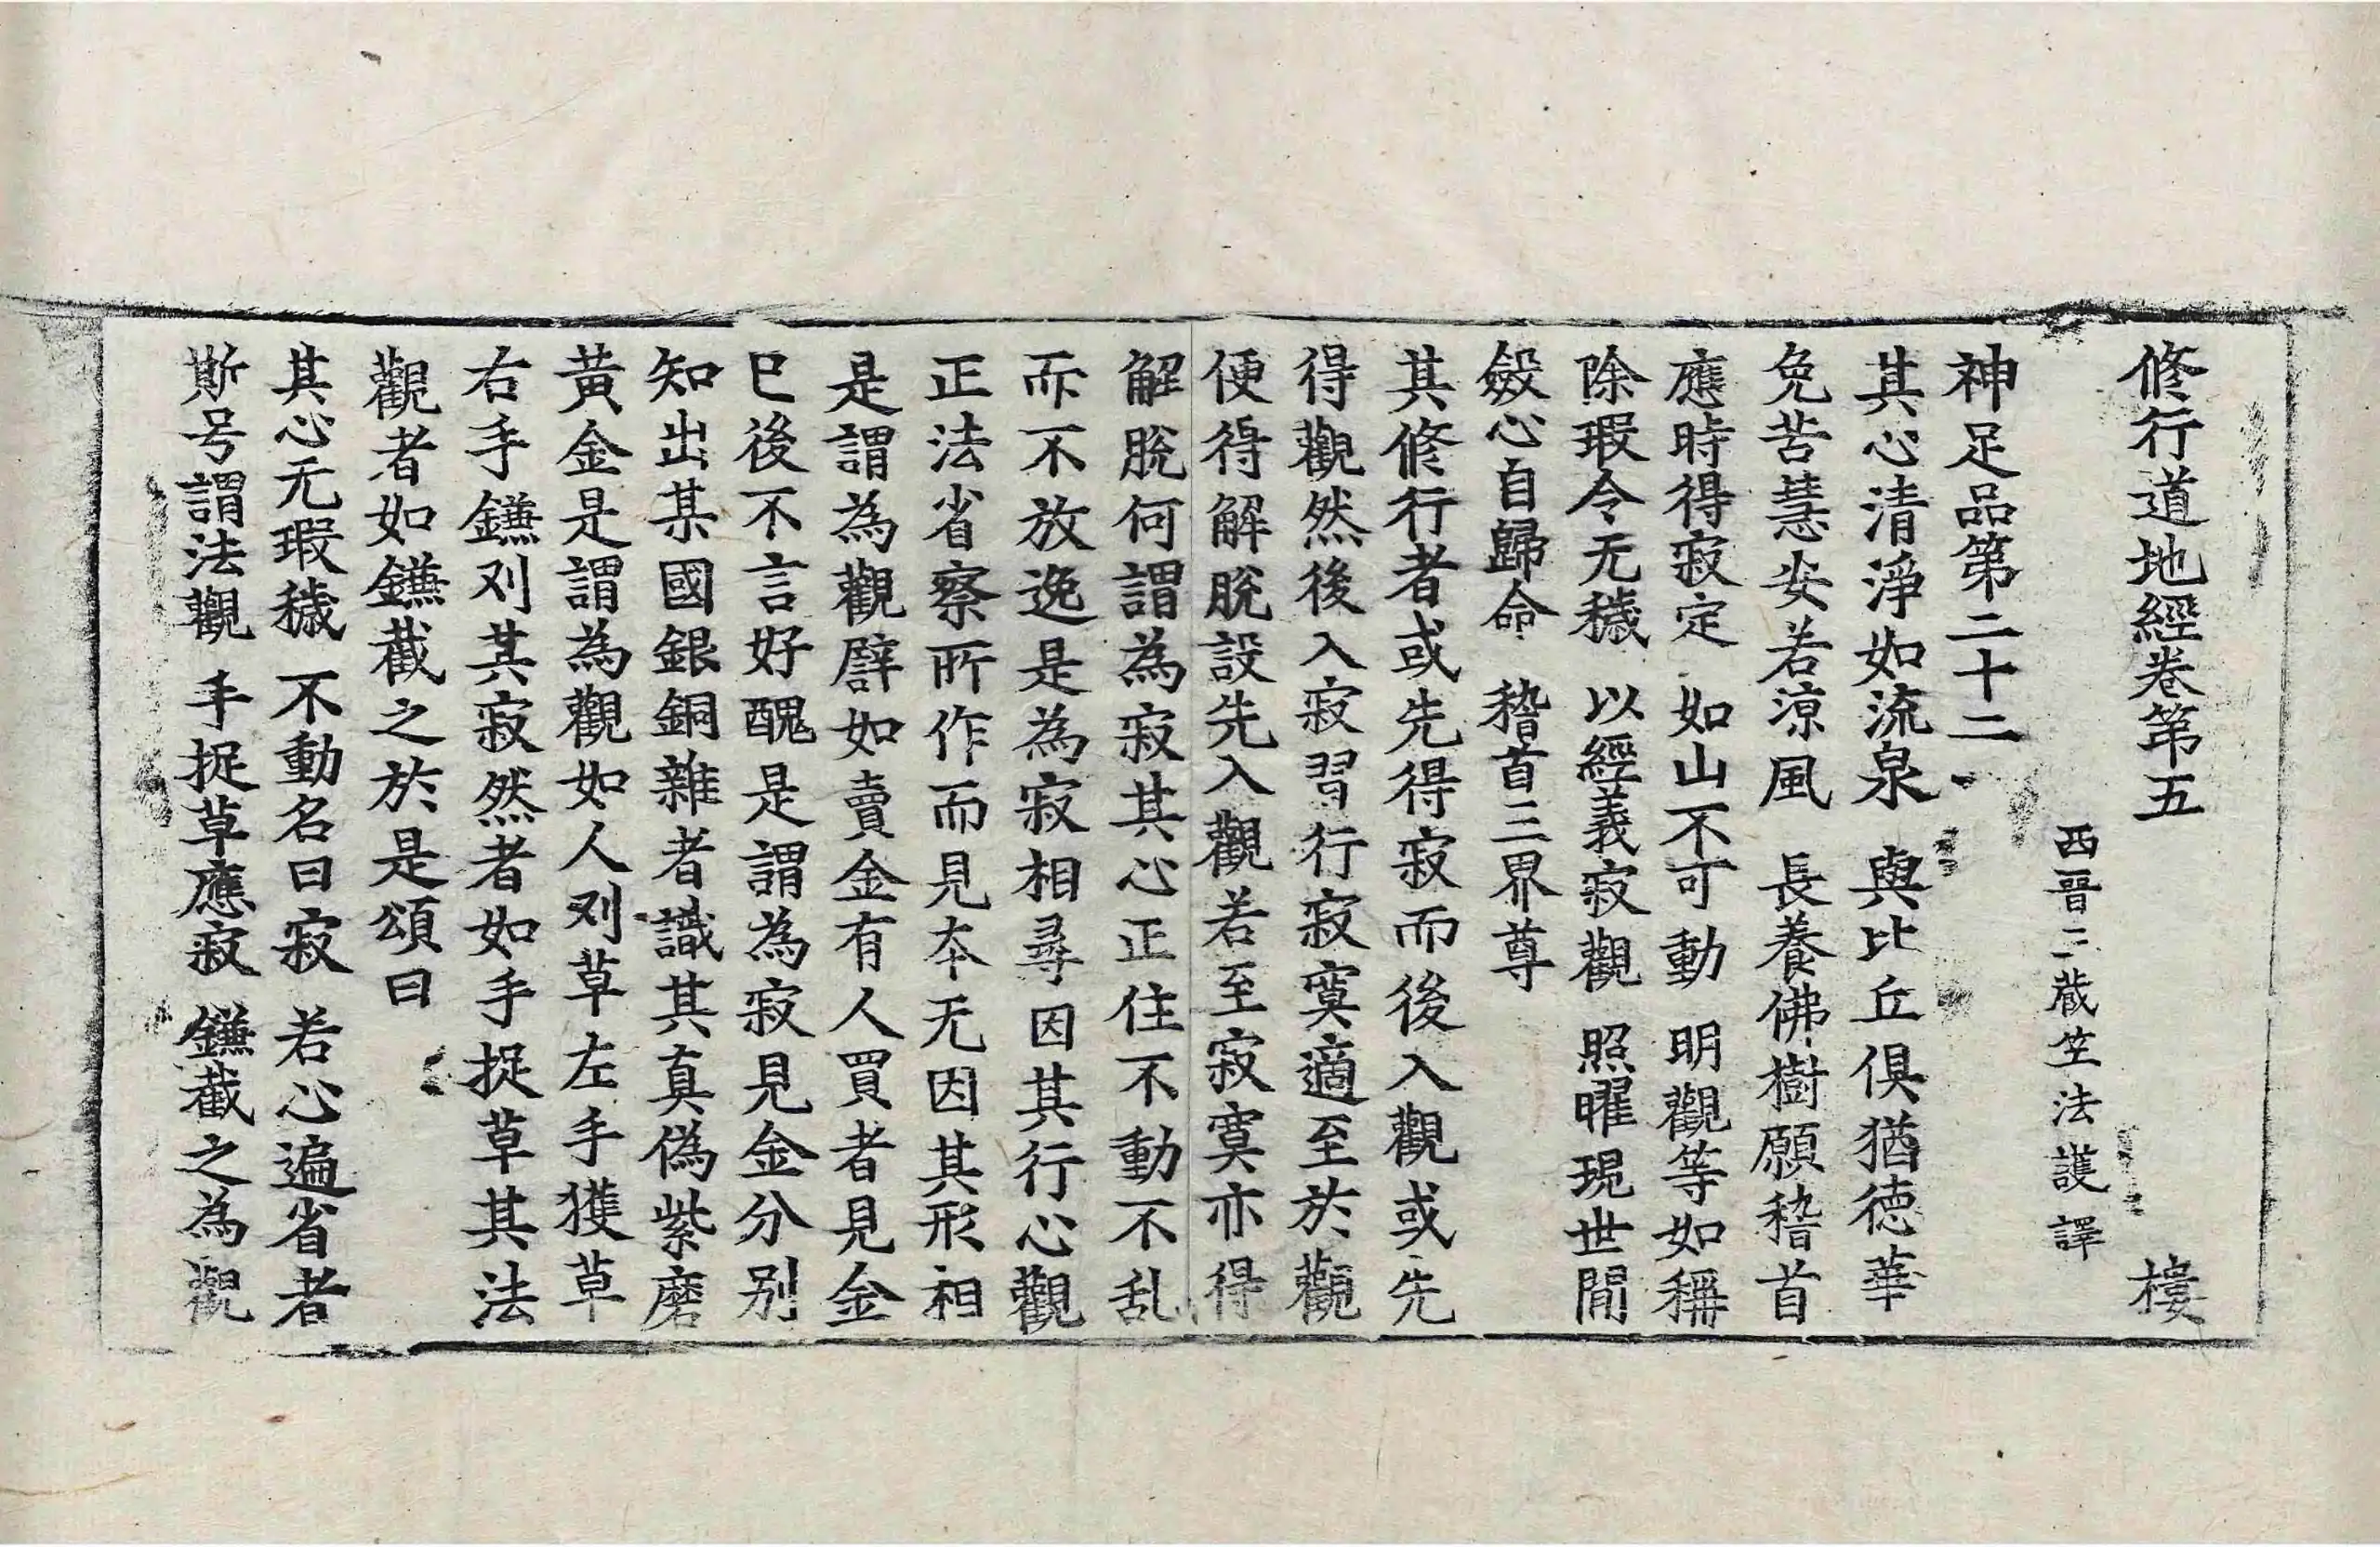 修行道地經卷第五　樓
西晉三藏竺法護譯
神足品第二十二
其心清淨如流泉　與比丘俱猶德華
免苦慧安若涼風　長養佛樹願稽首
應時得寂定　如山不可動　明觀等如稱
除瑕令无穢　以經義寂觀　照曜現世間
斂心自歸命　稽首三界尊
其修行者或先得寂而後入觀或先
得觀然後入寂習行寂寞適至於觀
便得解脫設先入觀若至寂寞亦得
解脫何謂為寂其心正住不動不乱
而不放逸是為寂相尋因其行心觀
正法省察所作而見本无因其形相
是謂為觀譬如賣金有人買者見金
已後不言好醜是謂為寂見金分別
知出某國銀銅雜者識其真偽紫磨
黃金是謂為觀如人刈草左手獲草
右手鎌刈其寂然者如手捉草其法
觀者如鎌截之於是頌曰
其心无瑕穢　不動名曰寂　若心遍省者
斯号謂法觀　手捉草應寂　鎌截之為觀